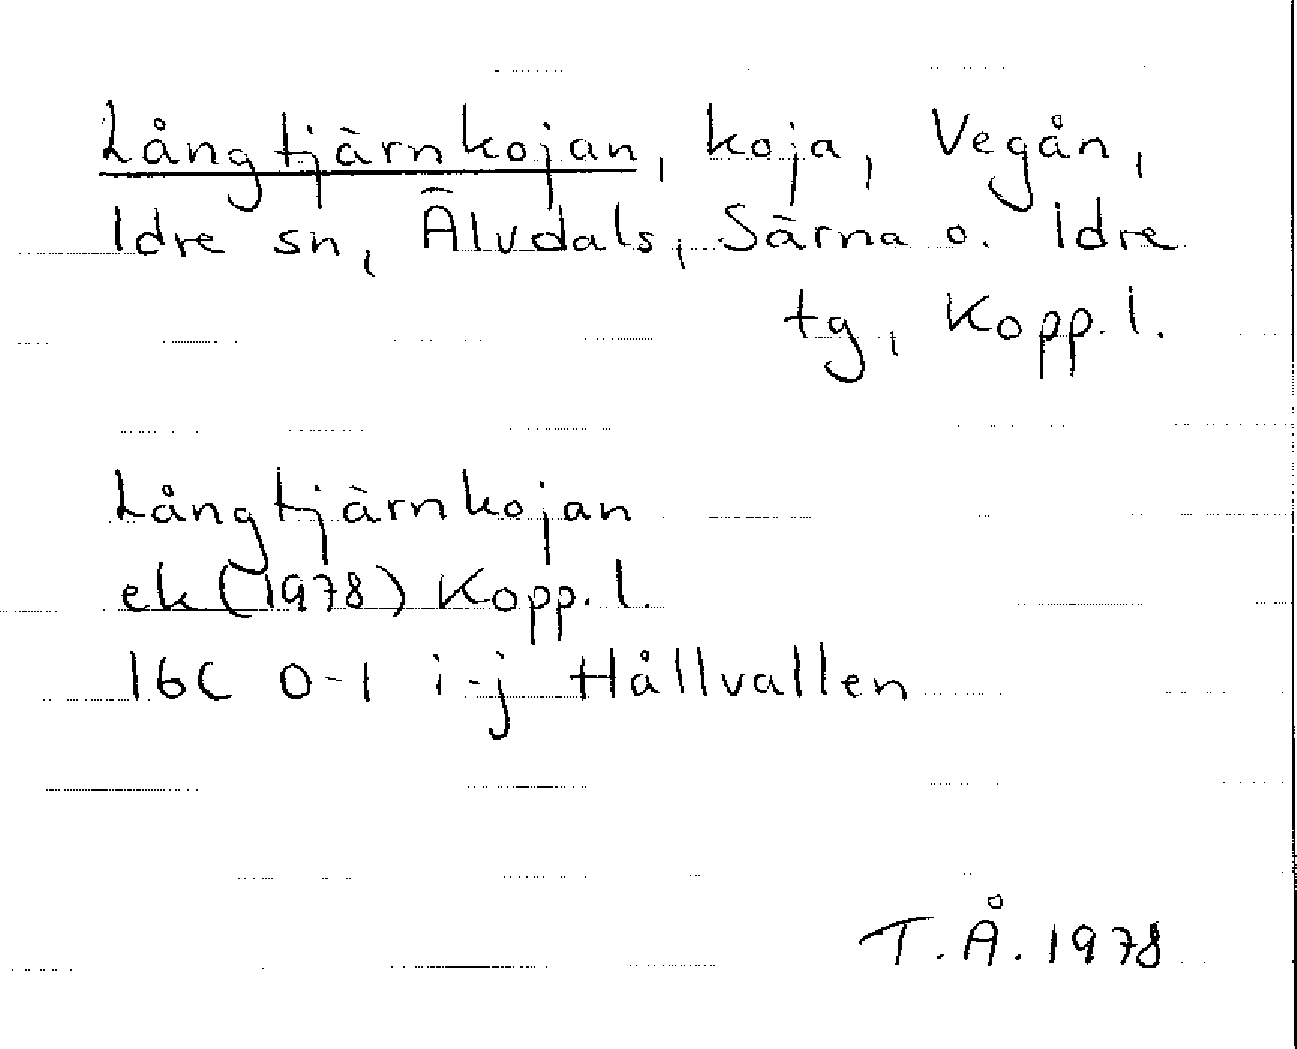 Långtjärnkojan, koja, Vegån,
Idre sn, Älvdals, Särna o. Idre
tg, Kopp. l.
Långtjärnkojan
ek (1978) Kopp. l.
16C 0-1 i-j Hållvallen
T.Å. 1978